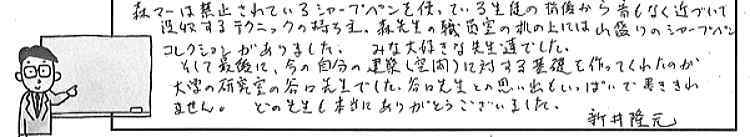 森マーは禁止されているシャープペンを使っている生徒の背後から音もなく近づいて
没収するテクニックの持ち主。森先生の職員室の机の上には山盛りのシャープペン
コレクションがありました。 みな大好きな先生達でした。
そして最後に、今の自分の建築(空間)に対する基礎を作ってくれたのが
大学の研究室の谷口先生でした。谷口先生との思い出もいっぱいで書ききれ
ません。 どの先生も本当にありがとうございました。
新井隆元